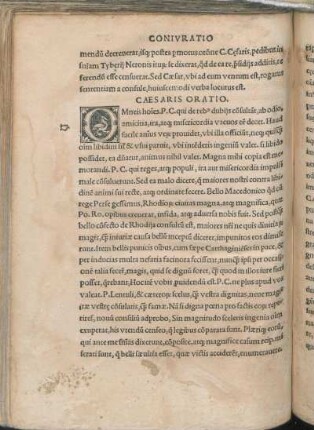 CONIVRATIO
mendũ decreuerat, isq; postea ꝑmotus oratiõe C. Cęsaris, pedibus in
sniam Tyberij Neronis iturũ se dixerat, qđ de ea re, ꝑsidijs additis, re
ferendũ esse censuerat. Sed Cæsar, vbi ad eum ventum est, rogatus
sententiam a consule, huiuscemodi verba locutus est.
CAESARIS ORATIO.
OMneis hoies. P. C. qui de rebus dubijs cõsultãt, ab odio,
amicitia, ira, atq; misericordia vacuos eẽ decet. Haud
facile anius vera prouidet, vbi illa officiũt, neq; quisq̃
oim libidini sil' & vsui paruit, vbi intẽderis ingeniũ valet. si libido
possidet, ea dñatur, animus nihil valet. Magna mihi copia est me
morandi. P. C. qui reges, atq; populi, ira aut misericordia impulsi
male cõsuluerint. Sed ea malo dicere, q̃ maiores nostri contra libi
dinẽ animi sui recte, atq; ordinate fecere. Bello Macedonico qđ cũ
rege Perse gessimus, Rhodioꝝ ciuitas magna, atq; magnifica, quæ
Po. Ro. opibus creuerat, infida, atq; aduersa nobis fuit. Sed postq̃
bello cõfecto de Rhodijs consultũ est, maiores nři ne quis diuitiaꝝ
magis, q̃ iniuriæ causa bellũ inceptũ diceret, impunitos eos dimise
runt. Item bellis punicis oibus, cum sæpe Carthaginẽses in pace, &
per inducias multa nefaria facinora fecissent, nunq̃ ipsi per occasi
onẽ talia fecere, magis, quid se dignũ foret, q̃ quod in illos iure fieri
posset, q̃rebant. Hoc itẽ vobis puidendũ est. P. C. ne plus apud vos
valeat. P. Lentuli, & cæteroꝝ scelus, q̃ vestra dignitas, neue magis
iræ vestrę cõsulatis, q̃ famæ. Nã si digna poena pro factis eoꝝ rep
tires, nouũ consiliũ adprobo. Sin magnitudo sceleris ingenia oĩm
exuperat, his vtendũ censeo, q̃ legibus cõparata sunt. Pleriq; eorũ,
qui ante me snias dixerunt, cõposite, atq; magnifice casum reip. mi
serati sunt, q̃ belli sæuitia esset, quæ victis acciderẽt, enumerauere.